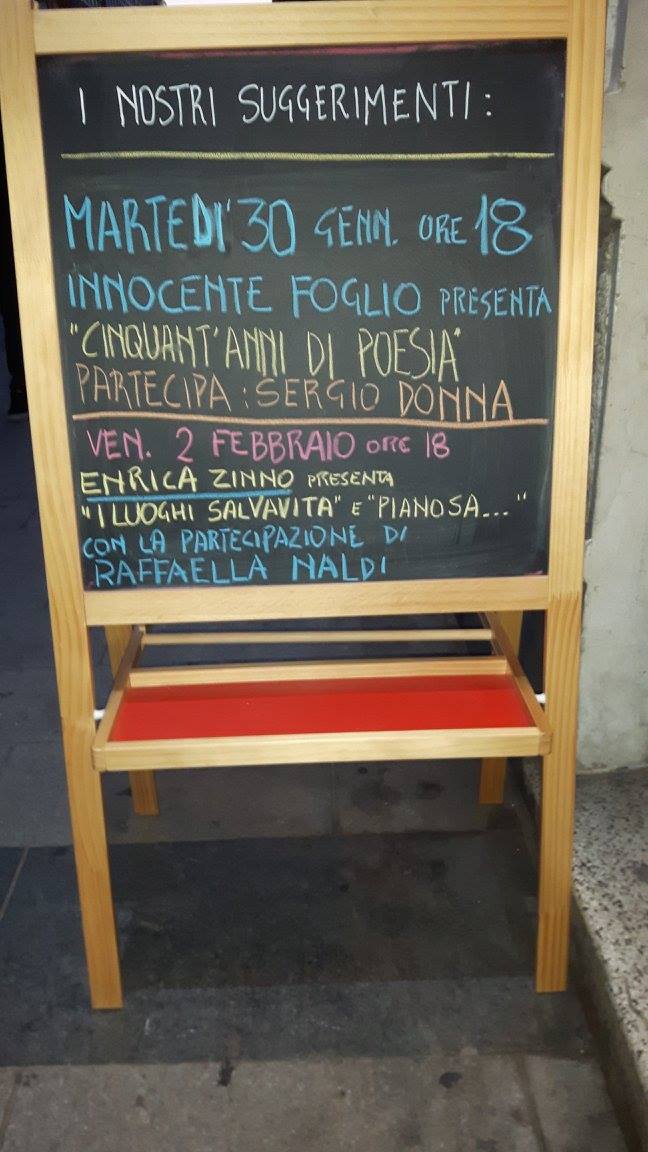 I NOSTRI SUGGERIMENTI:
MARTEDI' 30 GENN. ORE 18
INNOCENTE FOGLIO PRESENTA
"CINQUANT'ANNI DI POESIA"
PARTECIPA: SERGIO DONNA
VEN. 2 FEBBRAIO ORE 18
ENRICA ZINNO PRESENTA
"I LUOGHI SALVAVITA" E "PIANOSA..."
CON LA PARTECIPAZIONE DI
RAFFAELLA NALDI